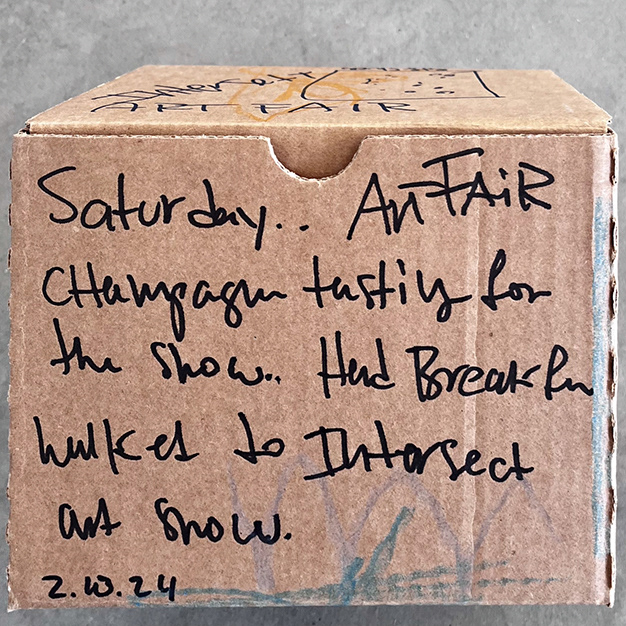 Intersect
ART FAIR
Saturday.. Art FAiR
CHampagne tasting for
the show.. Had Breakfas
walked to Intersect
art show.
2.10.24